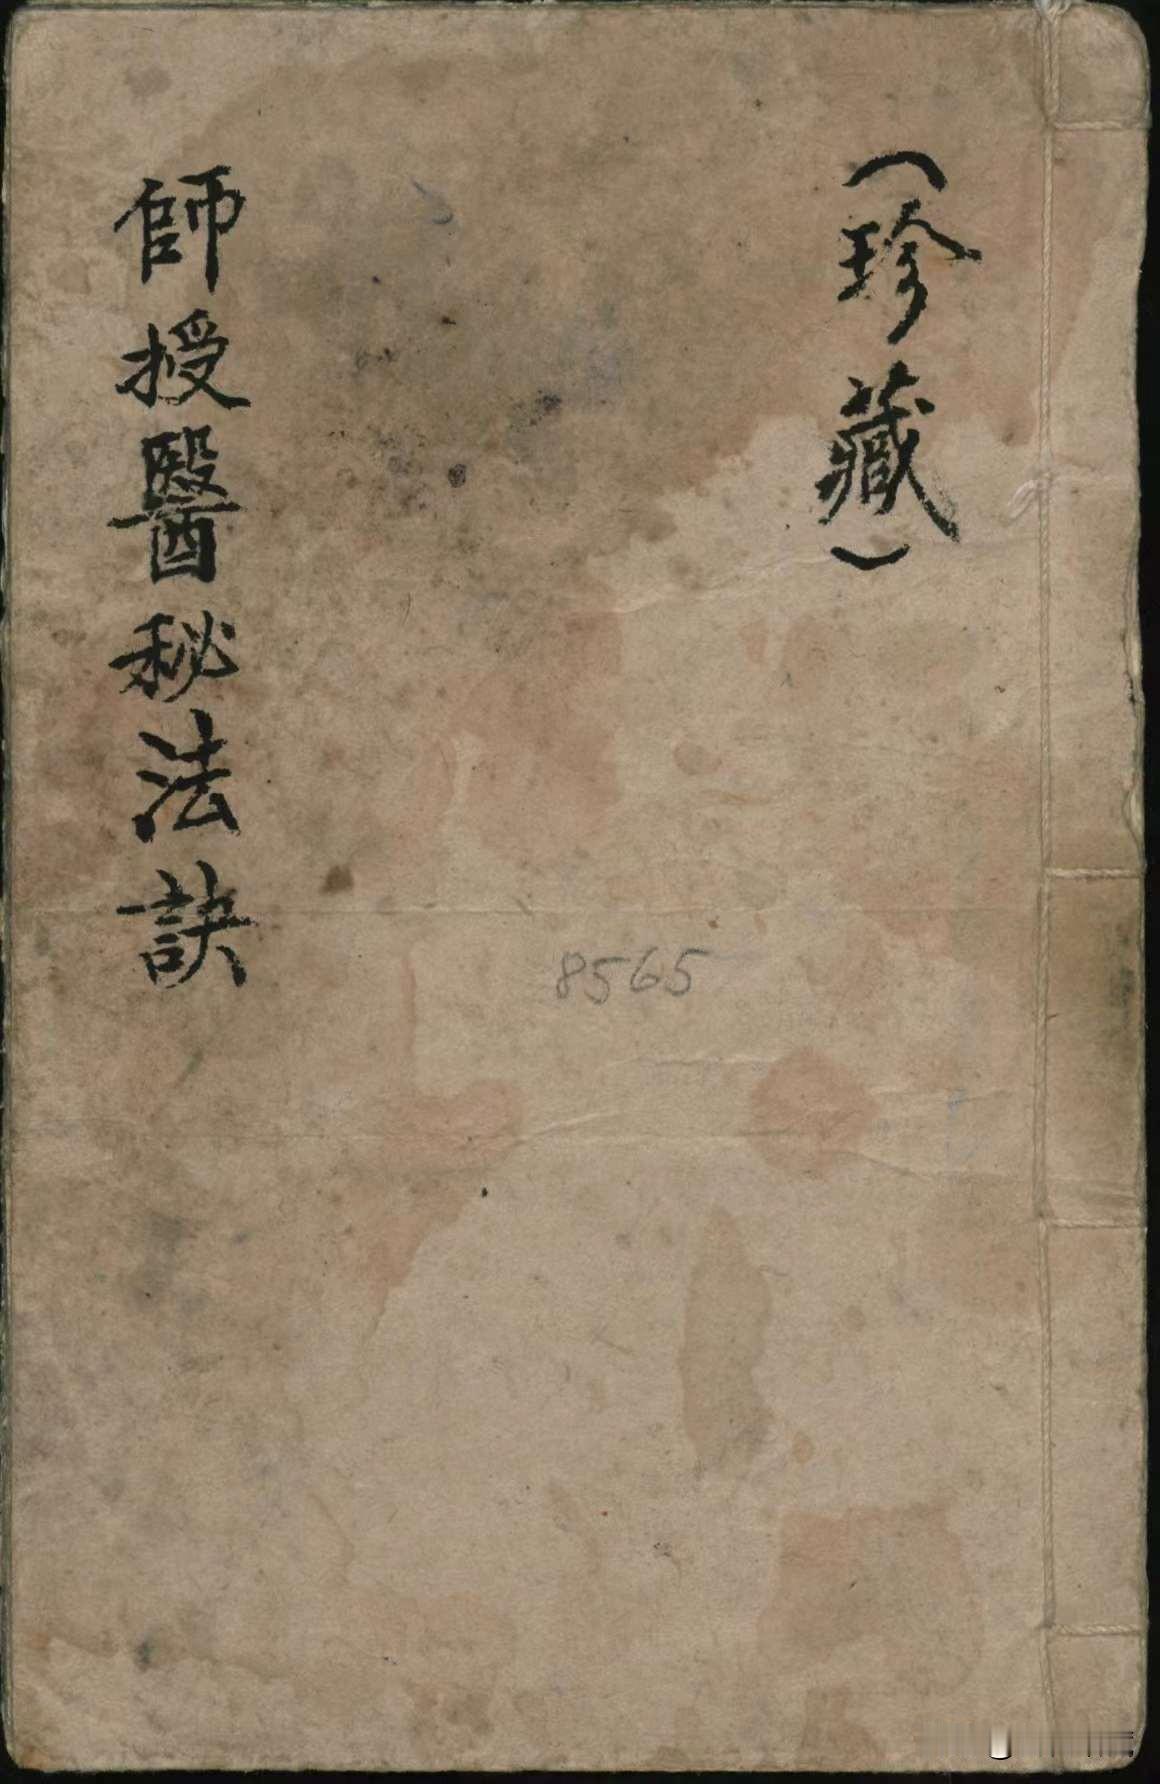 （珍藏）
師授醫秘法訣
8565